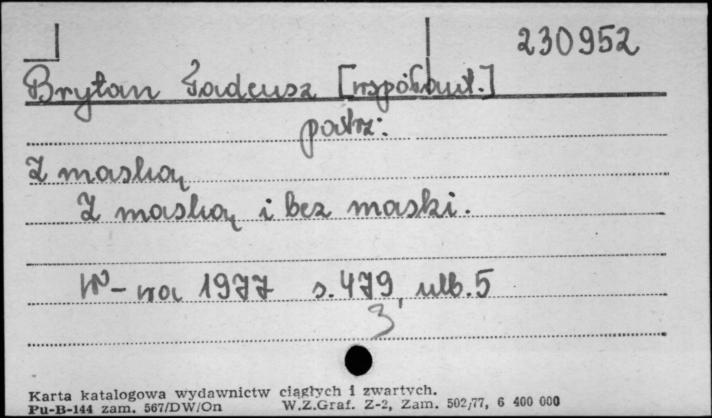 230952
Brytan Tadeusz [współaut.]
patrz:
Z maską
Z maską i bez maski.
W-wa 1977 s. 479, nlb. 5
3
Karta katalogowa wydawnictw ciągłych i zwartych.
Pu-B-144 zam. 567/DW/On W.Z.Graf. Z-2, Zam. 502/77, 6 400 000